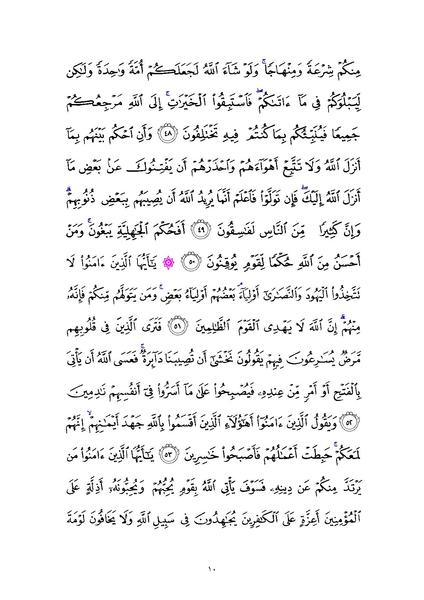 مِنكُمْ شِرْعَةً وَمِنْهَاجًا ۚ وَلَوْ شَآءَ ٱللَّهُ لَجَعَلَكُمْ أُمَّةً وَٰحِدَةً وَلَٰكِن
لِّيَبْلُوَكُمْ فِى مَآ ءَاتَىٰكُمْ ۖ فَٱسْتَبِقُوا۟ ٱلْخَيْرَٰتِ ۚ إِلَى ٱللَّهِ مَرْجِعُكُمْ
جَمِيعًا فَيُنَبِّئُكُم بِمَا كُنتُمْ فِيهِ تَخْتَلِفُونَ ﴿٤٨﴾ وَأَنِ ٱحْكُم بَيْنَهُم بِمَآ
أَنزَلَ ٱللَّهُ وَلَا تَتَّبِعْ أَهْوَآءَهُمْ وَٱحْذَرْهُمْ أَن يَفْتِنُوكَ عَنۢ بَعْضِ مَآ
أَنزَلَ ٱللَّهُ إِلَيْكَ ۖ فَإِن تَوَلَّوْا۟ فَٱعْلَمْ أَنَّمَا يُرِيدُ ٱللَّهُ أَن يُصِيبَهُم بِبَعْضِ ذُنُوبِهِمْ ۗ
وَإِنَّ كَثِيرًا مِّنَ ٱلنَّاسِ لَفَٰسِقُونَ ﴿٤٩﴾ أَفَحُكْمَ ٱلْجَٰهِلِيَّةِ يَبْغُونَ ۚ وَمَنْ
أَحْسَنُ مِنَ ٱللَّهِ حُكْمًا لِّقَوْمٍ يُوقِنُونَ ﴿٥٠﴾ ۞ يَٰٓأَيُّهَا ٱلَّذِينَ ءَامَنُوا۟ لَا
تَتَّخِذُوا۟ ٱلْيَهُودَ وَٱلنَّصَٰرَىٰٓ أَوْلِيَآءَ ۘ بَعْضُهُمْ أَوْلِيَآءُ بَعْضٍ ۚ وَمَن يَتَوَلَّهُم مِّنكُمْ فَإِنَّهُۥ
مِنْهُمْ ۗ إِنَّ ٱللَّهَ لَا يَهْدِى ٱلْقَوْمَ ٱلظَّٰلِمِينَ ﴿٥١﴾ فَتَرَى ٱلَّذِينَ فِى قُلُوبِهِم
مَّرَضٌ يُسَٰرِعُونَ فِيهِمْ يَقُولُونَ نَخْشَىٰٓ أَن تُصِيبَنَا دَآئِرَةٌ ۚ فَعَسَى ٱللَّهُ أَن يَأْتِىَ
بِٱلْفَتْحِ أَوْ أَمْرٍ مِّنْ عِندِهِۦ فَيُصْبِحُوا۟ عَلَىٰ مَآ أَسَرُّوا۟ فِىٓ أَنفُسِهِمْ نَٰدِمِينَ
﴿٥٢﴾ وَيَقُولُ ٱلَّذِينَ ءَامَنُوٓا۟ أَهَٰٓؤُلَآءِ ٱلَّذِينَ أَقْسَمُوا۟ بِٱللَّهِ جَهْدَ أَيْمَٰنِهِمْ ۙ إِنَّهُمْ
لَمَعَكُمْ ۚ حَبِطَتْ أَعْمَٰلُهُمْ فَأَصْبَحُوا۟ خَٰسِرِينَ ﴿٥٣﴾ يَٰٓأَيُّهَا ٱلَّذِينَ ءَامَنُوا۟ مَن
يَرْتَدَّ مِنكُمْ عَن دِينِهِۦ فَسَوْفَ يَأْتِى ٱللَّهُ بِقَوْمٍ يُحِبُّهُمْ وَيُحِبُّونَهُۥٓ أَذِلَّةٍ عَلَى
ٱلْمُؤْمِنِينَ أَعِزَّةٍ عَلَى ٱلْكَٰفِرِينَ يُجَٰهِدُونَ فِى سَبِيلِ ٱللَّهِ وَلَا يَخَافُونَ لَوْمَةَ
١٠